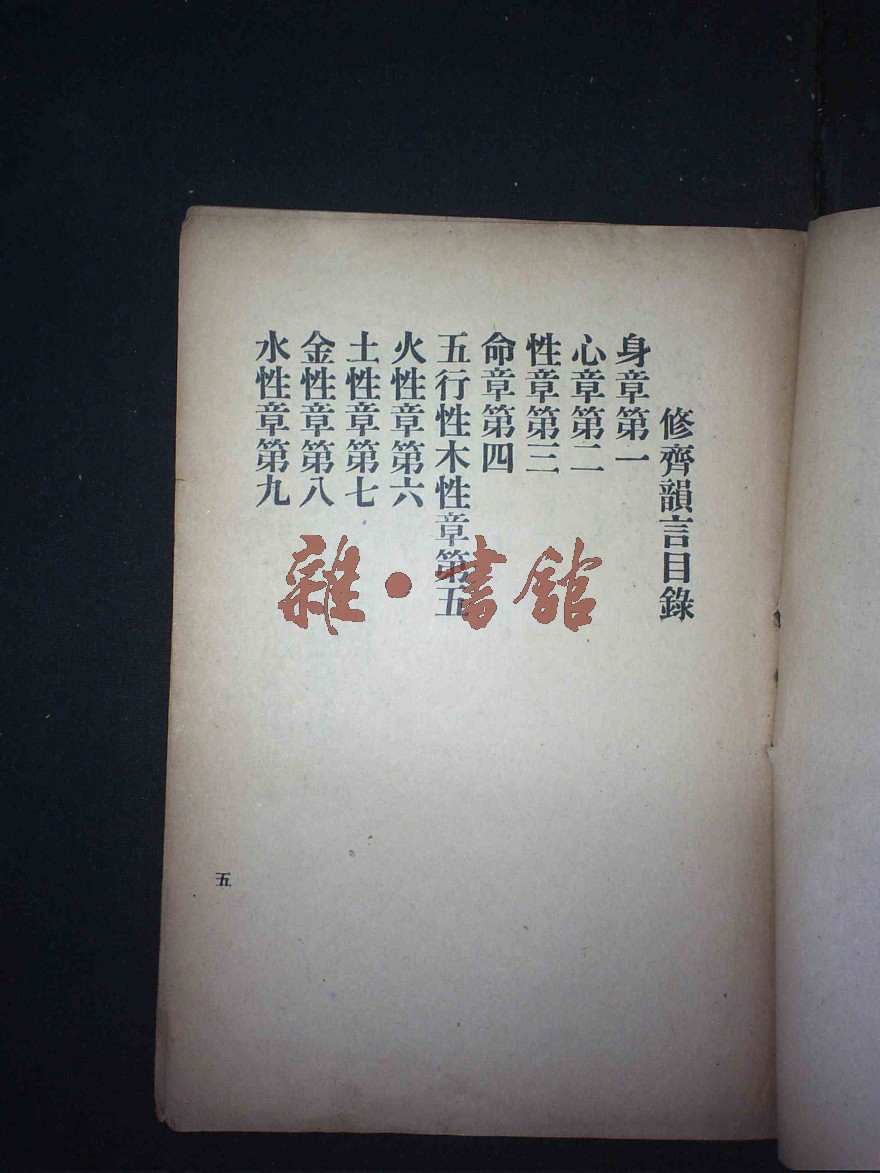 修齊韻言目錄
身章第一
心章第二
性章第三
命章第四
五行性木性章第五
火性章第六
土性章第七
金性章第八
水性章第九
五
雜·書館